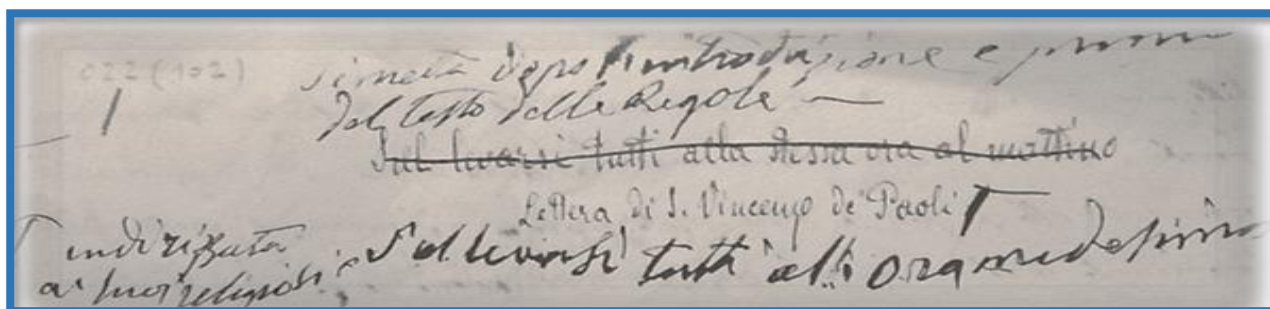 022 (102)
si metta dopo l'introduzione e prima
del testo delle Regole —
Sul levarsi tutti alla stessa ora al mattino
Lettera di S. Vincenzo de' Paoli Γ
Γ indirizzata
a' suoi religiosi. Sul levarsi tutti all' ora medesima